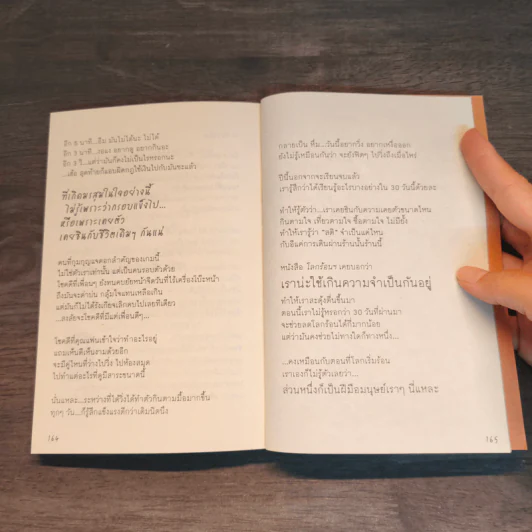 อีก 8 นาที...อืม มันไม่ได้นะ ไม่ได้
อีก 3 นาที...เธอง อยากดู อยากกินอะ
อีก 5 วิ...แต่ว่ามันก็คงไม่เป็นไรหรอกนะ
...เฮ้อ สุดท้ายก็เผลอผิดกฎใช้เงินไปกับมันซะแล้ว
ที่เกือบเสมในใจอย่างนี้
ไม่รู้เพราะว่ากรอบแข็งไป...
หรือเพราะเคยตัว
เคยชินกับชีวิตเดิมๆ กันแน่
คนที่กุมกุญแจดอกสำคัญของเกมนี้
ไม่ใช่ตัวเราเท่านั้น แต่เป็นคนรอบตัวด้วย
โชคดีที่เพื่อนๆ ยังทนคบยัยหน้าจืดวันที่ไร้เครื่องโป๊ะหน้า
ถึงมันจะด่าบ่น กลุ้มใจแทนเหลือเกิน
แต่มันก็ไม่ได้รังเกียจเลิกคบไปเลยทีเดียว
...สงสัยจะโชคดีที่มีแต่เพื่อนดีๆ...
โชคดีที่คุณแฟนเข้าใจว่าทำอะไรอยู่
แถมเห็นดีเห็นงามด้วยอีก
จะมีคู่ไหนที่ว่างไปวิ่ง ไปห้องสมุด
ไปทำแต่อะไรที่ดูมีสาระขนาดนี้
นั่นแหละ...ระหว่างที่ได้วิ่งได้ทำตัวกินตามมื้อมากขึ้น
ทุกๆ วัน...ก็รู้สึกแข็งแรงดีกว่าเดิมนิดนึง
164
กลายเป็น หืม...วันนี้อยากวิ่ง อยากเหงื่อออก
ยังไม่รู้เหมือนกันว่า จะยังฟิตๆ ไปวิ่งถึงเมื่อไหร่
ปีนี้นอกจากจะเรียนจบแล้ว
เรารู้สึกว่าได้เรียนรู้อะไรบางอย่างใน 30 วันนี้ด้วยละ
ทำให้รู้ตัวว่า...เราเคยชินกับความเคยตัวขนาดไหน
กินตามใจ เที่ยวตามใจ ซื้อตามใจ ไม่มียั้ง
ทำให้เรารู้ว่า "สติ" จำเป็นแค่ไหน
กับอีแค่การเดินผ่านร้านนั้นร้านนี้
หนังสือ โลกร้อนฯ เคยบอกว่า
เราน่ะใช้เกินความจำเป็นกันอยู่
ทำให้เราสะดุ้งตื่นขึ้นมา
ตอนนี้เราไม่รู้หรอกว่า 30 วันที่ผ่านมา
จะช่วยลดโลกร้อนได้กี่มากน้อย
แต่ว่ามันคงช่วยไม่ทางใดก็ทางหนึ่ง...
...คงเหมือนกับตอนที่โลกเริ่มร้อน
เราเองก็ไม่รู้ตัวเลยว่า...
ส่วนหนึ่งก็เป็นฝีมือมนุษย์เราๆ นี่แหละ
165